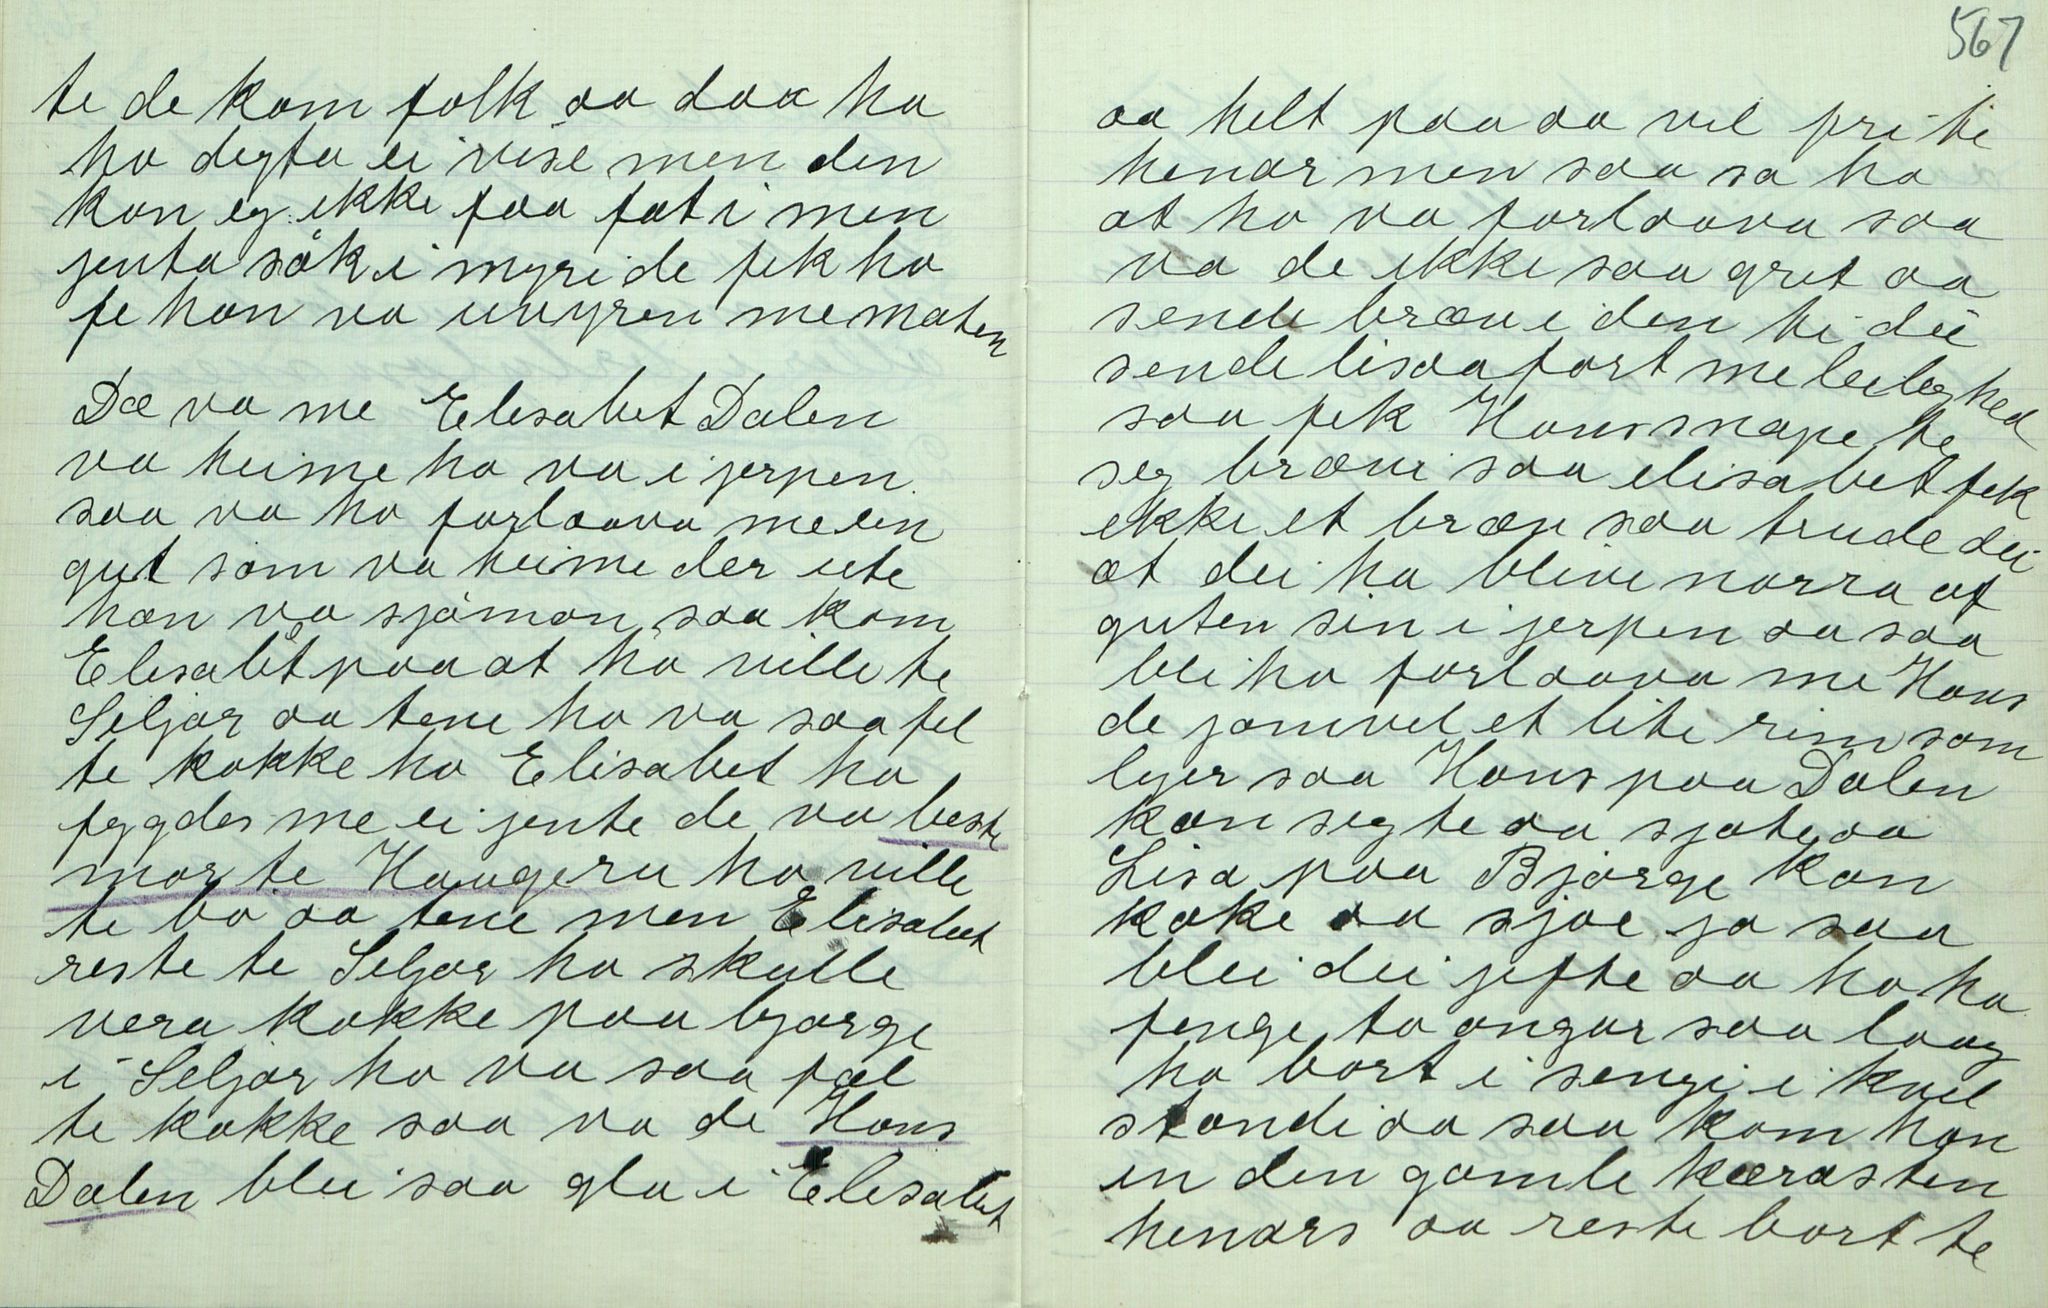 te de kom folk aa daa ha
ho degta ei vise men den
kan eg ikke faa fat i men
jenta såk i myri de fek ho
fe han va uvyren me maten
Dæ va me Elesabet Dalen
va heime ho va i jerpen
saa va ho forlaava me en
gut som va heime der ute
han va sjåman saa kom
Elesabet paa at ho ville te
Seljor aa tene ho va saa fel
te kokke ho Elisabet ho
fygdes me ei jente de va beste
mor te Haugeru ho ville
te bø aa tene men Elisabet
reste te Seljor ho skulle
vera kokke paa bjørge
i Seljor ho va saa fæl
te kokke saa va de Hans
Dalen blei saa gla i Elesabet
567
aa helt paa aa vil fri te
henar men saa sa ho
at ho va forlaava saa
va de ikke saa gret aa
sende bræv i den ti dei
sende lisaa fort me leileghed
saa fek Hans snape te
seg brævi saa elisabet fek
ekke et bræv saa trude dei
at dei ha blive narra af
guten sin i jerpen aa saa
blei ho forlaava me Hans
de jamvel et lite rim som
lyer saa Hans paa Dalen
kan segte aa sjote aa
Lisa paa Bjørge kan
koke aa sjoe ja saa
blei dei jefte aa ho ha
fenge to ongar saa laag
ho bort i sengi i kvel
standi aa saa kom han
in den gamle kærasten
henars aa reste bort te